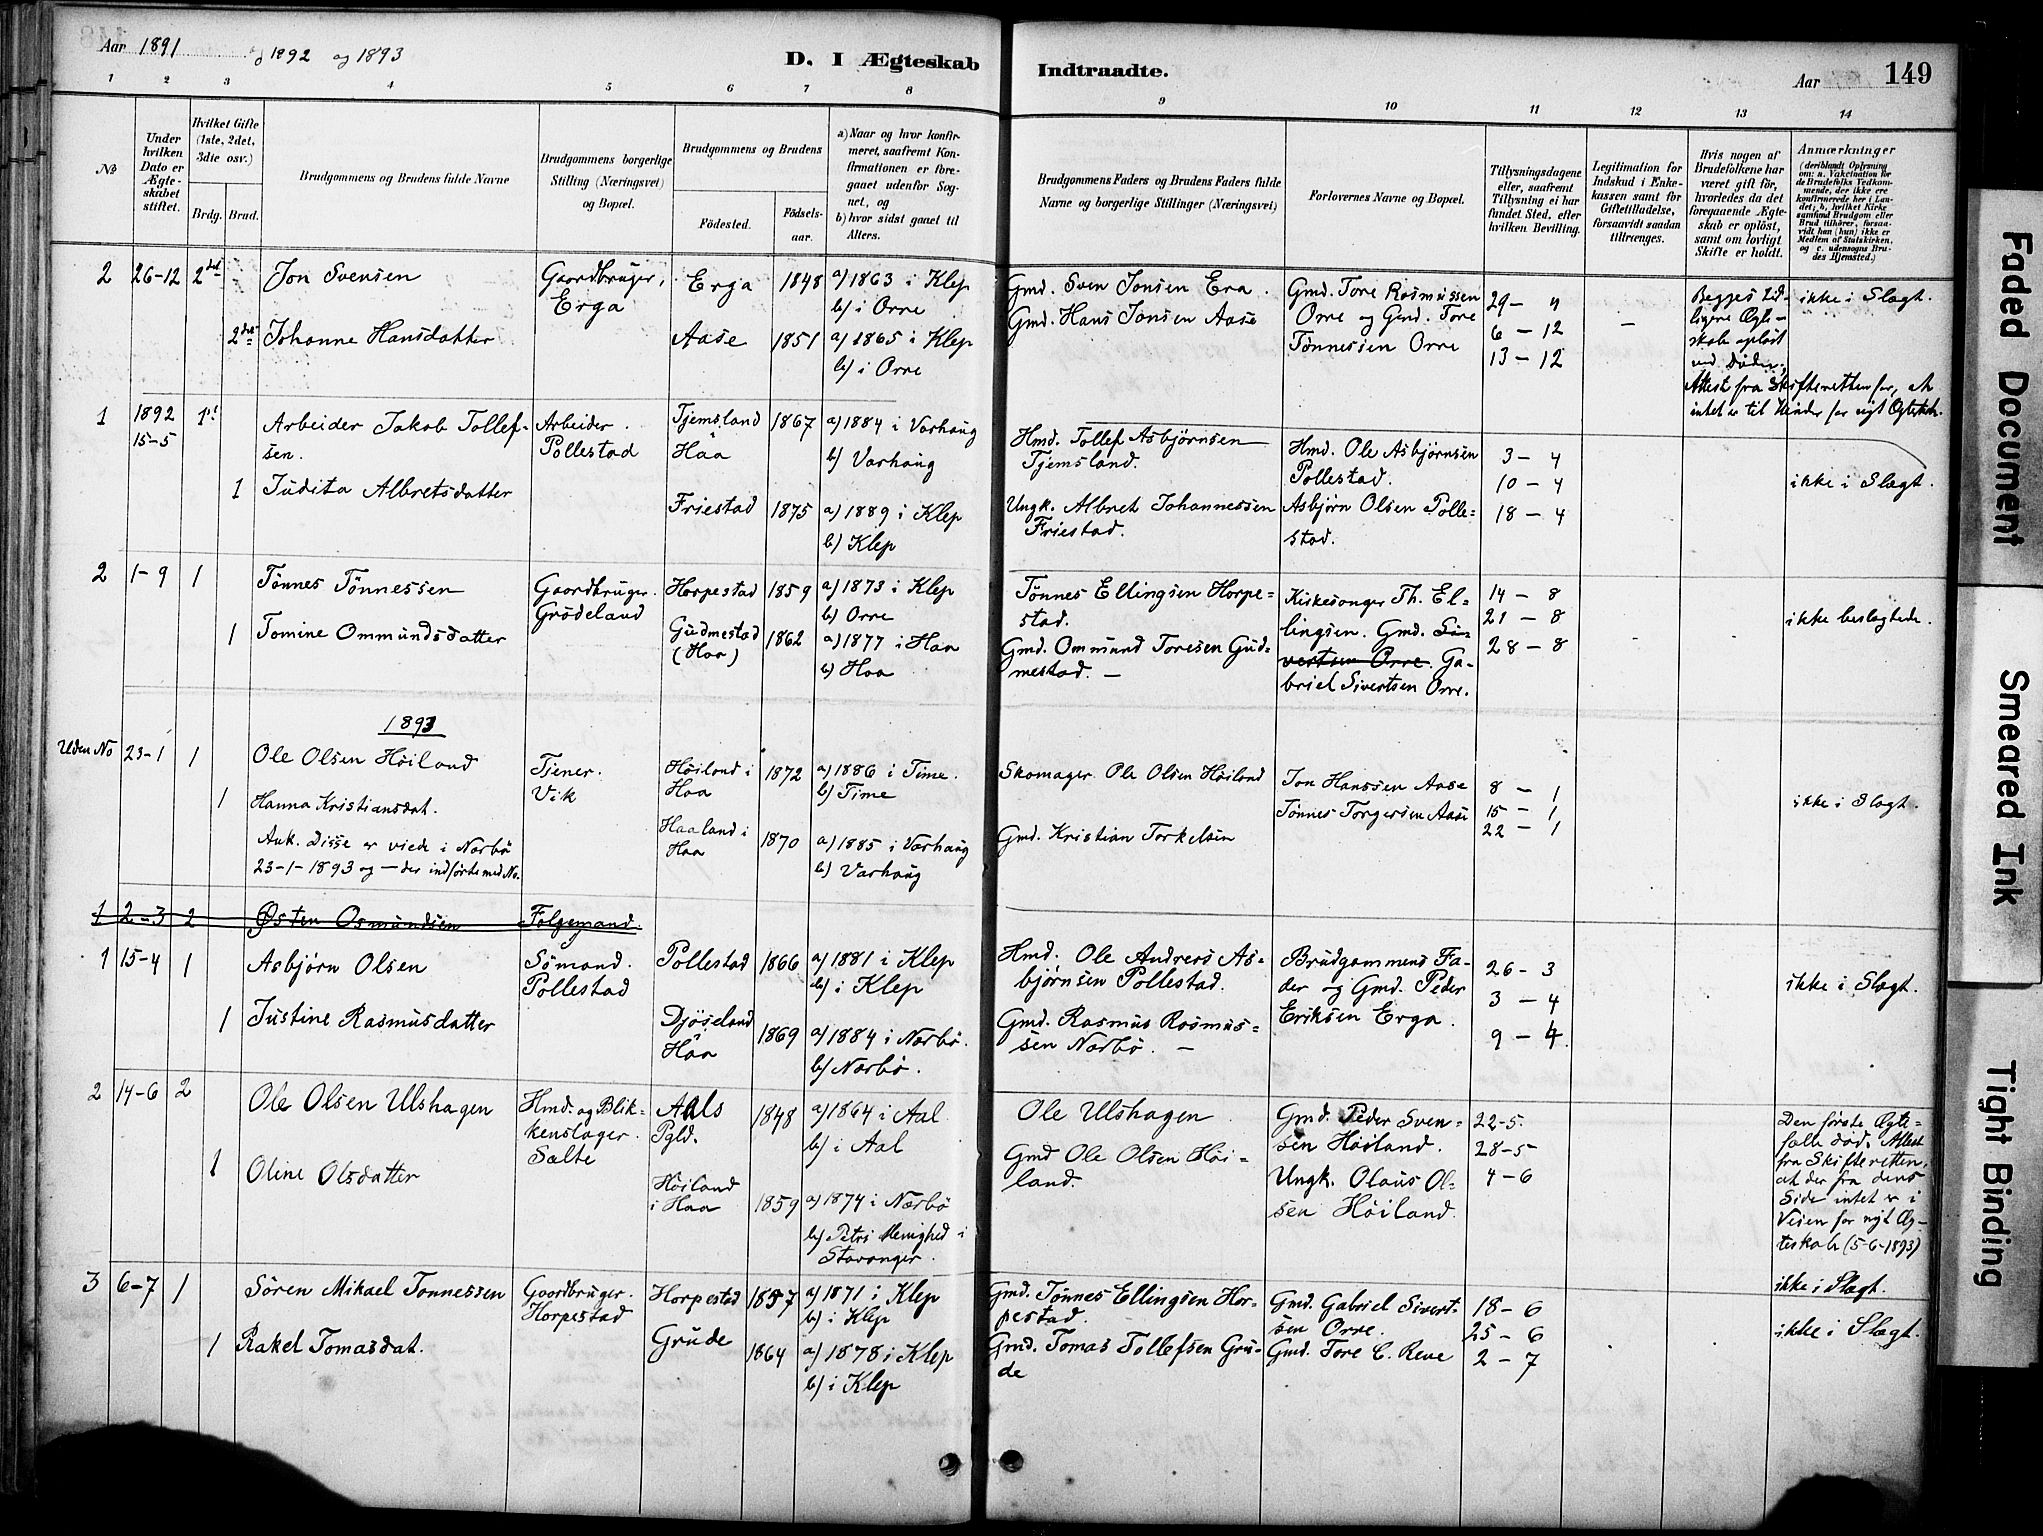 Aar 1891 og 1892 og 1893
D. I Ægteskab Indtraadte.
Aar
149
1 2 3 4 5 6 7 8 9 10 11 12 13 14
No
Under hvilken Dato er Ægteskabet stiftet.
Hvilket Gifte (1ste, 2det, 3die osv.)
Brdg. Brud.
Brudgommens og Brudens fulde Navne
Brudgommens borgerlige Stilling (Næringsvei) og Bopæl.
Brudgommens og Brudens
Fødested.
Fødselsaar.
a) Naar og hvor konfirmeret, saafremt Konfirmationen er foregaaet udenfor Sognet, og
b) hvor sidst gaaet til Alters.
Brudgommens Faders og Brudens Faders fulde Navne og borgerlige Stillinger (Næringsvei)
Forlovernes Navne og Bopæl.
Tillysningsdagene eller, saafremt Tillysning ei har fundet Sted, efter hvilken Bevilling.
Legitimation for Indskud i Enkekassen samt for Giftetilladelse, forsaavidt saadan tiltrænges.
Hvis nogen af Brudefolkene har været gift før, hvorledes da det foregaaende Ægteskab er opløst, samt om lovligt Skifte er holdt.
Anmærkninger (deriblandt Oplysning om: a. Vakcination for de Brudefolks Vedkommende, der ikke ere konfirmerede her i Landet; b. hvilket Kirkesamfund Brudgom eller Brud tilhører, forsaavidt han (hun) ikke er Medlem af Statskirken, og c. udensogns Brudes Hjemsted.)
2 26-12 2det Jon Svensen
Gaardbruger, Erga
Erga 1848 a) 1863 i Klep
b) i Orre
Gmd. Sven Jonsen Era.
Gmd. Tore Rasmussen Orre og Gmd. Tore Tönnessen Orre
29 - 11
6 - 12
13 - 12
-
Begges tidligere Ægteskab opløst ved Døden, Attest fra Skifteretten for, at intet er til Hinder for nyt Ægteskab.
ikke i Slægt.
2det Johanne Hansdatter
Aase 1851 a) 1865 i Klep
b) i Orre
Gmd. Hans Jonsen Aase
1 1892 15-5 1st Arbeider Jakob Tollefsen.
Arbeider. Pollestad
Tjemsland Haa 1867 a) 1884 i Varhaug
b) Varhaug
Hmd. Tollef Asbjørnsen Tjemsland.
Hmd. Ole Asbjørnsen Pollestad.
Asbjørn Olsen Pollestad.
3 - 4
10 - 4
18 - 4
ikke i Slægt.
1 Judita Albretsdatter
Friestad 1875 a) 1889 i Klep
b) Klep
Ungk. Albret Johannessen Friestad.
2 1-9 1 Tönnes Tönnessen
Gaardbruger. Grödeland
Horpestad 1859 a) 1873 i Klep
b) Orre
Tönnes Ellingsen Horpestad.
Kirkesanger Th. Ellingsen. Gmd. Sivertsen Orre. Gabriel Sivertsen Orre.
14 - 8
21 - 8
28 - 8
ikke beslægtede.
1 Tomine Ommundsdatter
Gudmestad (Haa) 1862 a) 1877 i Haa
b) Haa
Gmd. Ommund Toresen Gudmestad. -
1893
Uden No 23-1 1 Ole Olsen Höiland
Tjener. Vik
Höiland i Haa 1872 a) 1886 i Time.
b) Time
Skomager Ole Olsen Höiland
Jon Hanssen Aase
Tönnes Torgersen Aase
8 - 1
15 - 1
22 - 1
ikke i Slægt.
1 Hanna Kristiansdat.
Haaland i Haa 1870 a) 1885 i Varhaug
b) Varhaug
Gmd. Kristian Torkelsen
Ank. Disse er viede i Nærbö
23-1-1893 og - der indførte med No.
1 2-3 2 Østen Osmundsen Følgemand.
1 15-4 1 Asbjørn Olsen
Sömand. Pollestad
Pollestad 1866 a) 1881 i Klep
b) i Klep
Hmd. Ole Andreas Asbjørnsen Pollestad.
Brudgommens Fader og Gmd. Peder Eriksen Erga.
26 - 3
3 - 4
9 - 4
ikke i Slægt.
1 Justine Rasmusdatter
Djöseland Haa 1869 a) 1884 i Nærbö.
b) Nærbö.
Gmd. Rasmus Rasmussen Nærbö. -
2 14-6 2 Ole Olsen Ulshagen
Hmd. og Blikkenslager. Salte
Aals Pgld. 1848 a) 1864 i Aal
b) i Aal
Ole Ulshagen
Gmd. Peder Svensen Höiland.
Ungk. Olaus Olsen Höiland.
22-5.
28-5
4-6
Den første Ægtefælle død. Attest fra Skifteretten, at der fra dens Side intet er i Veien for nyt Ægteskab (5-6-1893)
ikke i Slægt.
1 Oline Olsdatter
Höiland i Haa 1859 a) 1874 i Nærbö
b) Petri Menighed i Stavanger.
Gmd Ole Olsen Höiland.
3 6-7 1 Sören Mikael Tönnessen
Gaardbruger. Horpestad
Horpestad 1857 a) 1871 i Klep
b) i Klep
Gmd. Tönnes Ellingsen Horpestad.
Gmd. Gabriel Sivertsen Orre.
Gmd. Tore C. Reve
18 - 6
25 - 6
2 - 7
ikke i Slægt.
1 Rakel Tomasdat.
Grude 1864 a) 1878 i Klep
b) i Klep
Gmd. Tomas Tollefsen Grude
Faded Document
Smeared Ink
Tight Binding